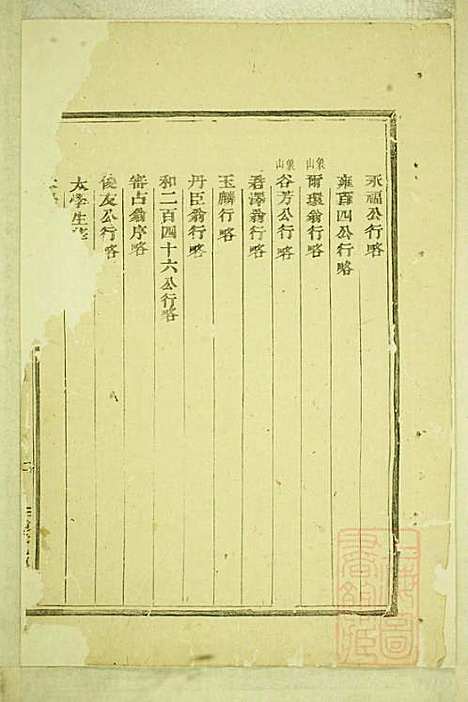 永福公行略
雍百四公行略
象山爾環翁行略
象山谷芳公行略
君澤翁行略
玉麟行略
丹臣翁行略
和二百四十六公行略
審占翁序略
俊友公行略
太學生